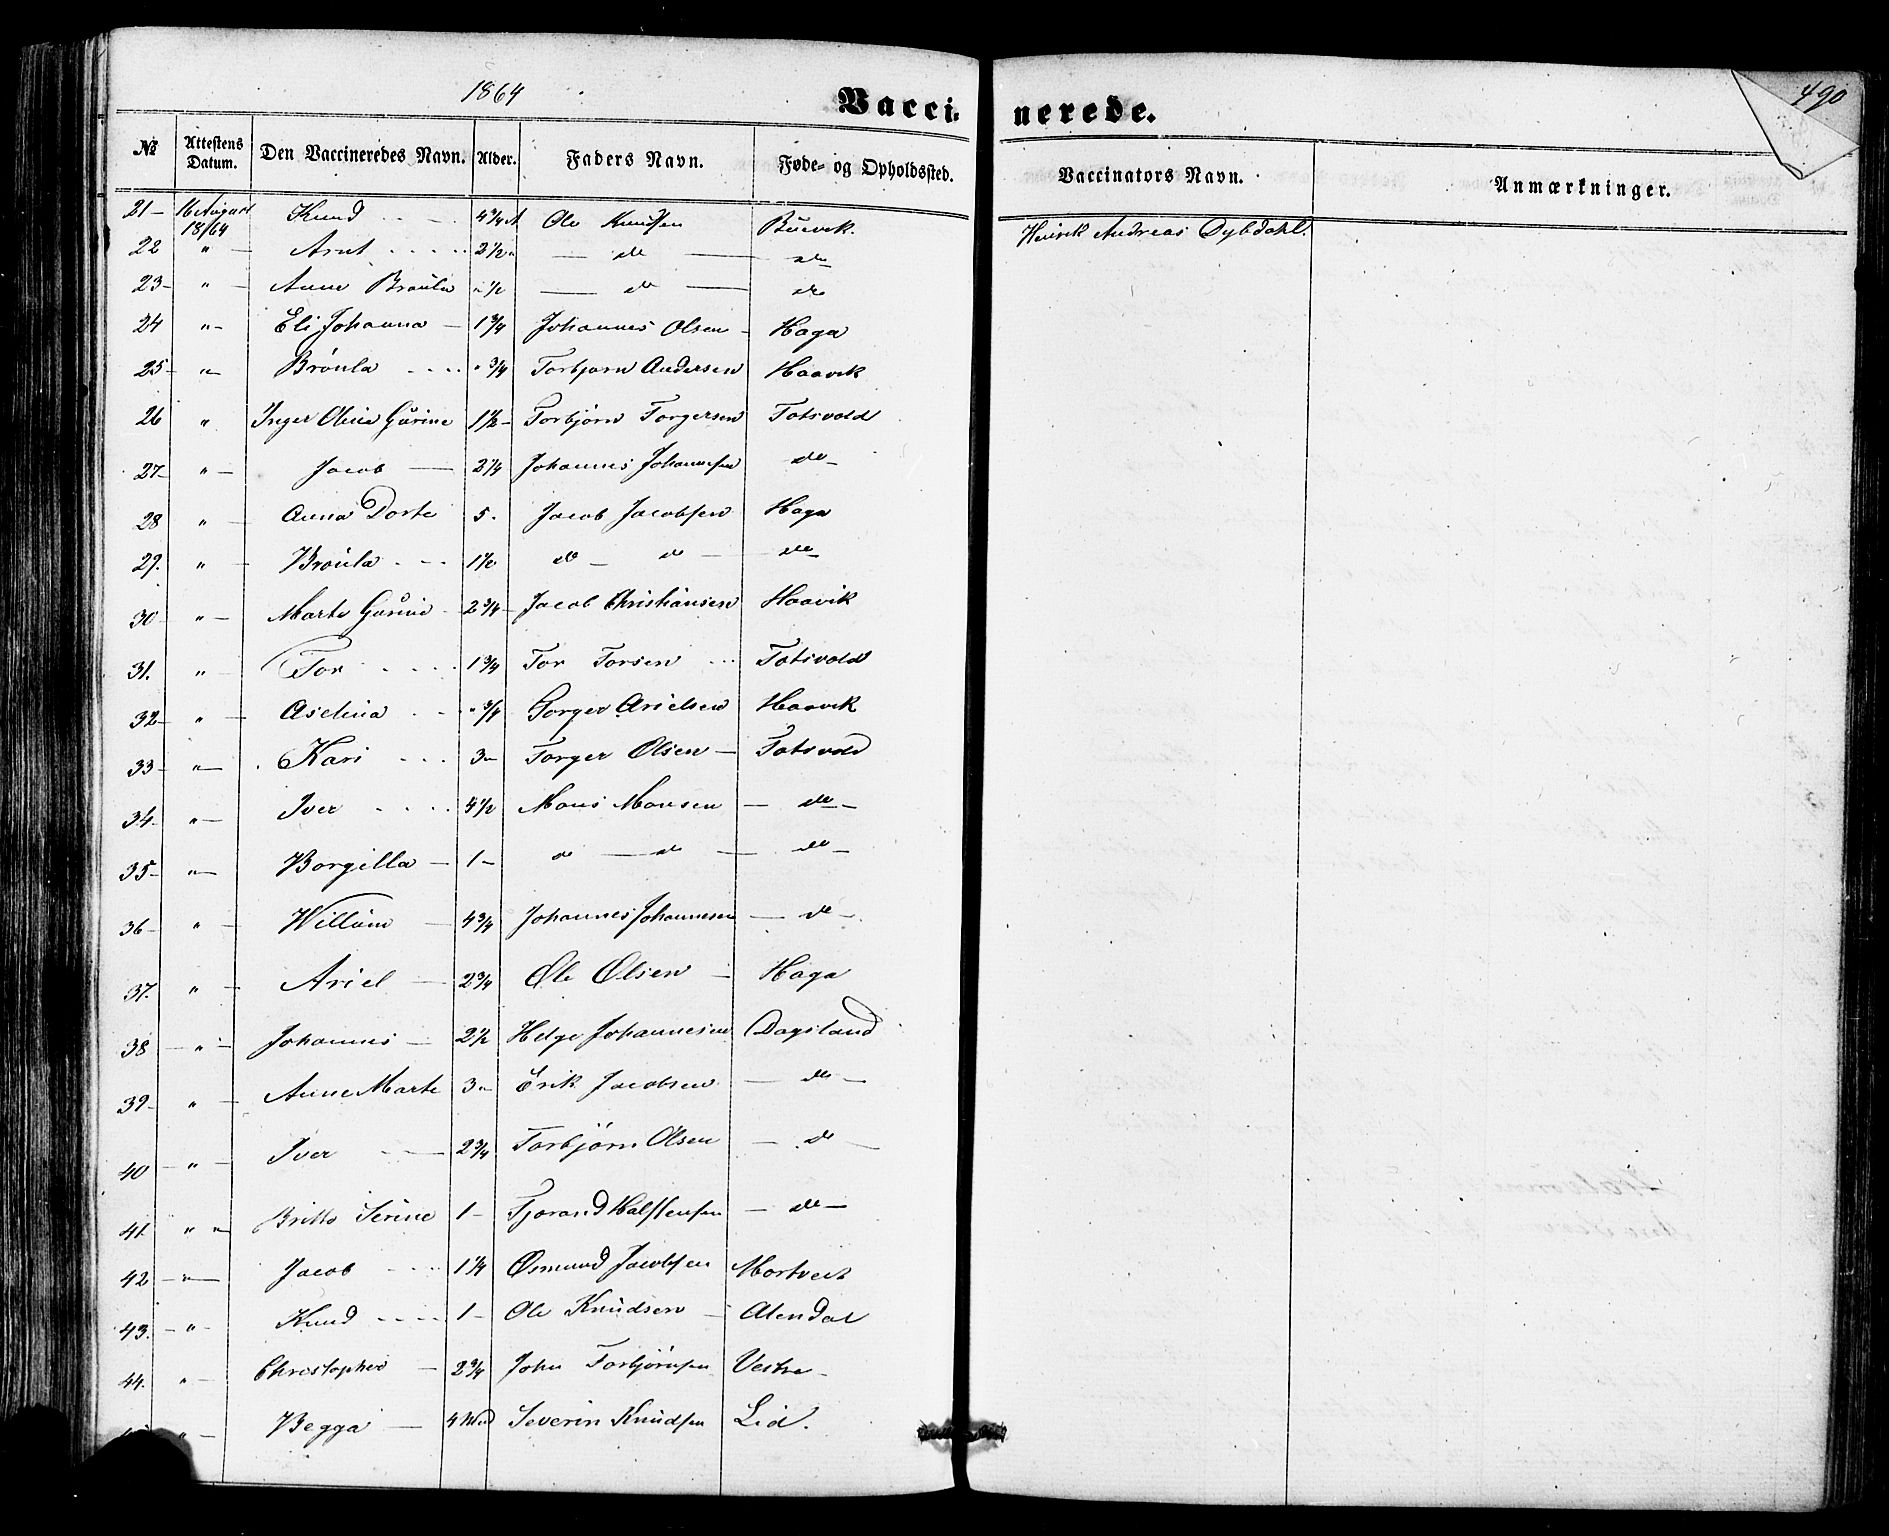 1864
490
Vaccinerede.
№ Attestens Datum. Den Vaccineredes Navn. Alder. Faders Navn. Føde- og Opholdssted. Vaccinators Navn. Anmærkninger.
21- 16 August 1864 Knud 4 3/4 A Ole Knudsen Buevik. Henrik Andreas Dybdahl.
22 " - Arnt 2 1/2 " - do - do
23- " - Anne Bronla " 1/2 - do - do
24 " - Eli Johanna - 1 3/4 Johannes Olsen - Haga
25- " Brönla " 3/4 Torbjørn Andersen Haavik
26 " Inger Oline Gürine 1 1/2 - Torbjørn Torgersen Totsvold
27- " - Jacob - 2 1/4 Johannes Johannesen do
28 " - Anna Dorte 5. Jacob Jacobsen Haga
29. " - Brönla 1 1/2 do - do - do
30 " - Marte Gürine 2 3/4 - Jacob Christiansen Haavik
31. " - Tor 1 3/4 Tor Torsen Totsvold
32- " - Aselina " 3/4 Torger Arielsen Haavik
33- " - Kari 3 " Torger Olsen - Totsvold
34- " - Iver 4 1/2 Mons Monsen - do -
35- " - Borgilla - 1 - do - do - do -
36- " - Willüm - 4 3/4 Johannes Johannesen - do -
37. " - Ariel - 2 3/4 Ole Olsen - Haga
38 - " - Johannes - 2 1/2 Helge Johannesen Dagsland
39- " - Anne Marte 3 " Erik Jacobsen - do -
40 - " - Iver - 2 3/4 Torbjörn Olsen - do -
41. " " Britte Serine 1 - Tjorand Halstensen - do -
42 - " - Jacob 1 1/4 Osmund Jacobsen Mortveit
43. - " - Knud 1 - Ole Knüdsen - Alendal
44. " - Christopher - 2 3/4 John Torbjörnsen Vestre -
" - Begga - 4 Md Severin Knüdsen Lid.